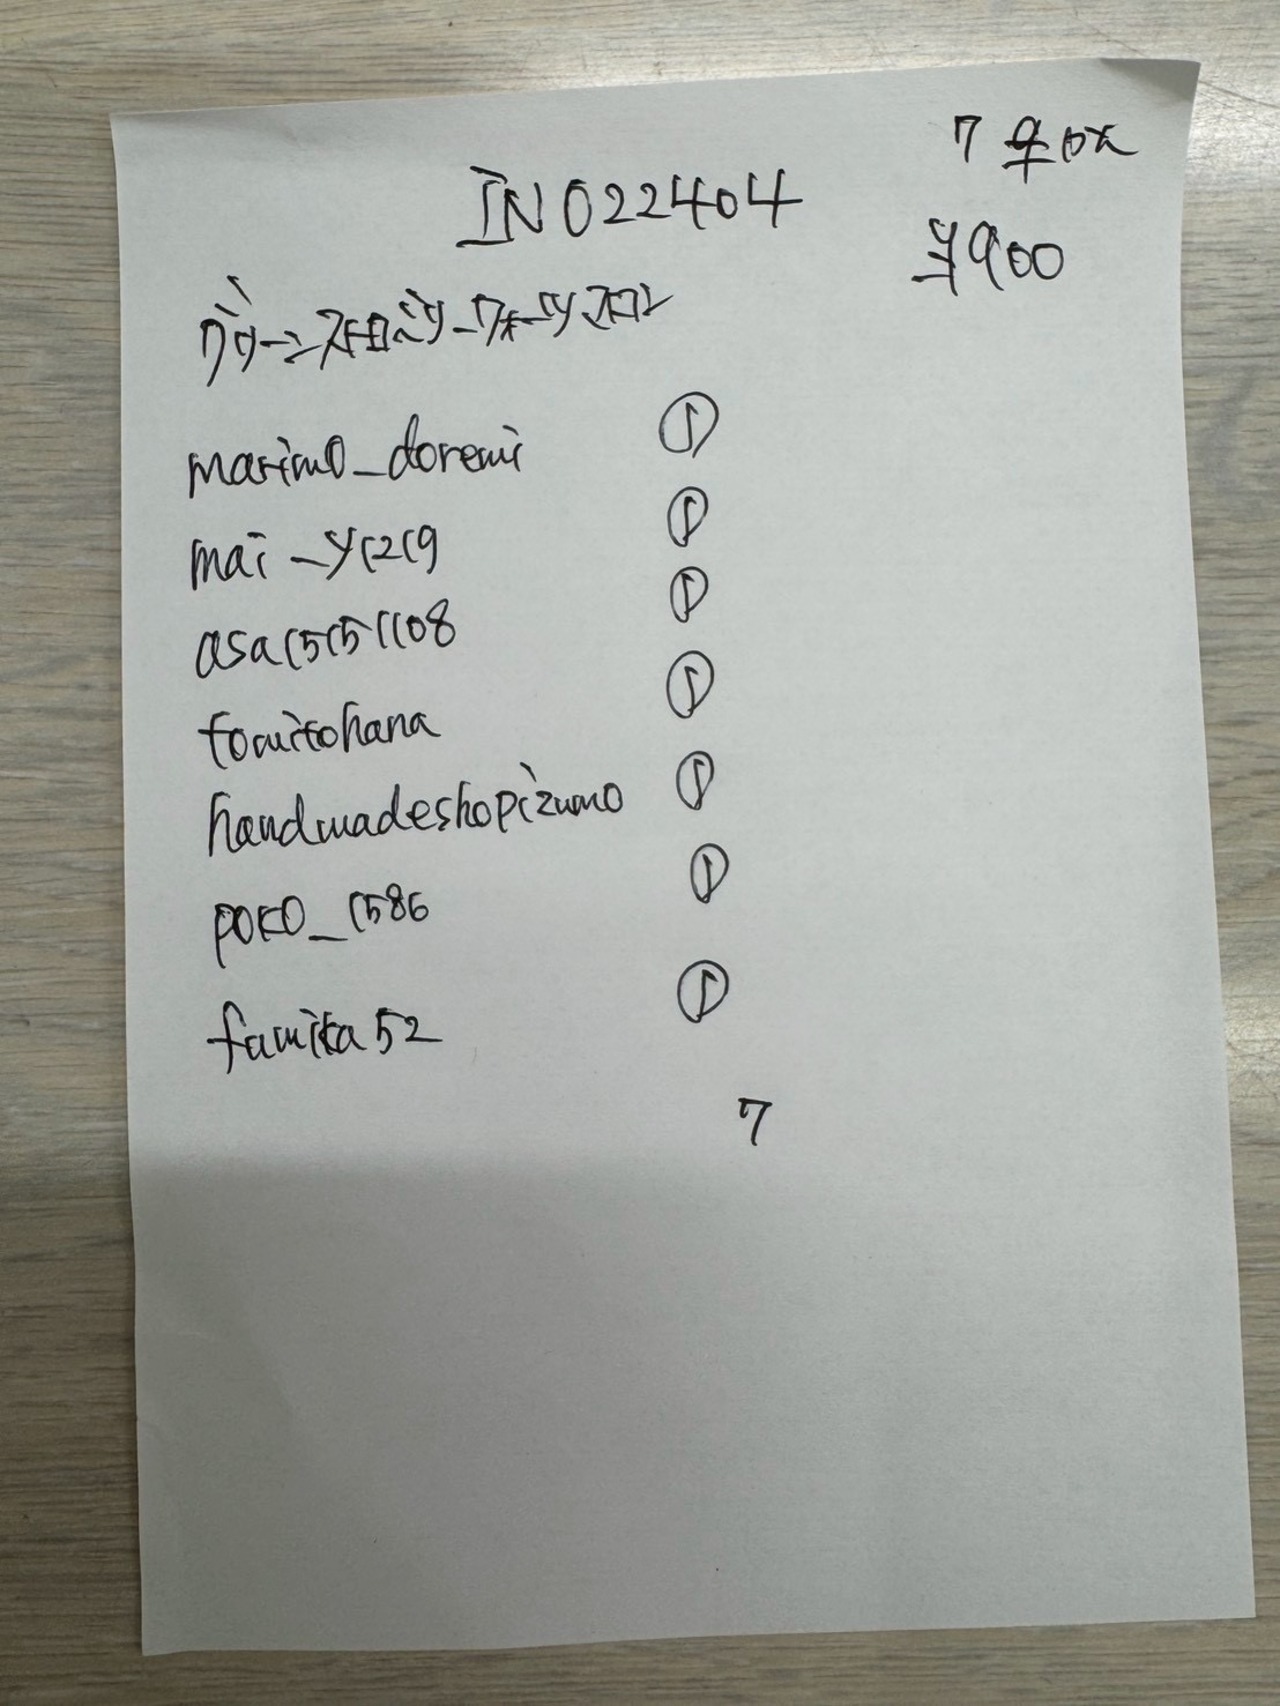 7 キロス
IN022404
¥900
グリーンストロベリークォーツ
marimo_doremi ①
mai_y1219 ①
asa15151108 ①
tomitohana ①
handmadeshopizumo ①
poko_1586 ①
fumika52 ①
7